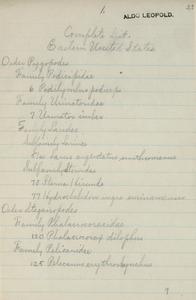 ALDO LEOPOLD.
Complete List.
Eastern United States
Order Pygopodes
Family Podicipidae
6 Podilymbus podiceps
Family Urinatoridae
7 Urinator imber
Family Laridae
Subfamily Larinae
Larus argentatus smithsonianus
Subfamily Sterninae
70 Sterna hirundo
77 Hydrochelidon nigra surinamensis
Order Steganopodes
Family Phalacrocoracidae
120 Phalacrocorax dilophus
Family Pelicanidae
125 Pelecanus erythrorhynchos